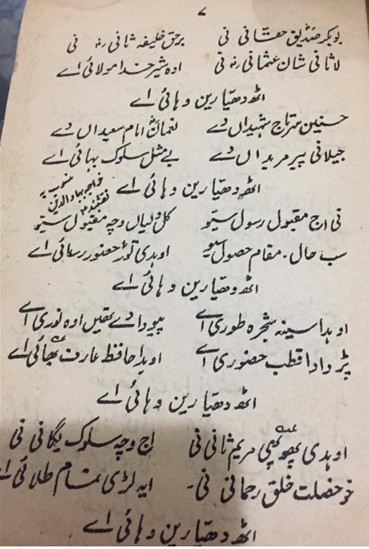 ۷
بوبکر صدیق حقانی نی برحق خلیفہ ثانی نی
لاثانی شان عثمانی نی اوہ شیر خدا مولائی اے
اٹھ دھیا رین وہائی اے
حسنین سرتاج شہیداں دے نعمان امام سعیداں دے
جیلانی پیر مریداں دے بے مثل سلوک بہائی اے
اٹھ دھیا رین وہائی اے
خواجہ بہاؤالدین نقشبند
نی اج مقبول رسول سیّو کل ولیاں وچہ مقبول سیّو
سب حال۔ مقام حصول سیّو اوہدی توڑ حضور رسائی اے
اٹھ دھیا رین وہائی اے
اوہدا سینہ شجرہ طوری اے پیو دادے تھیں اوہ نوری اے
پڑدادا قطب حضوری اے اوہدا حافظ عارف بھائی اے
اٹھ دھیا رین وہائی اے
اوہدی پھوپھی مریم ثانی نی اج وچہ سلوک یگانی نی
خو خصلت خلق رحمانی نی۔ ایہ لڑی تمام طلائی اے
اٹھ دھیا رین وہائی اے